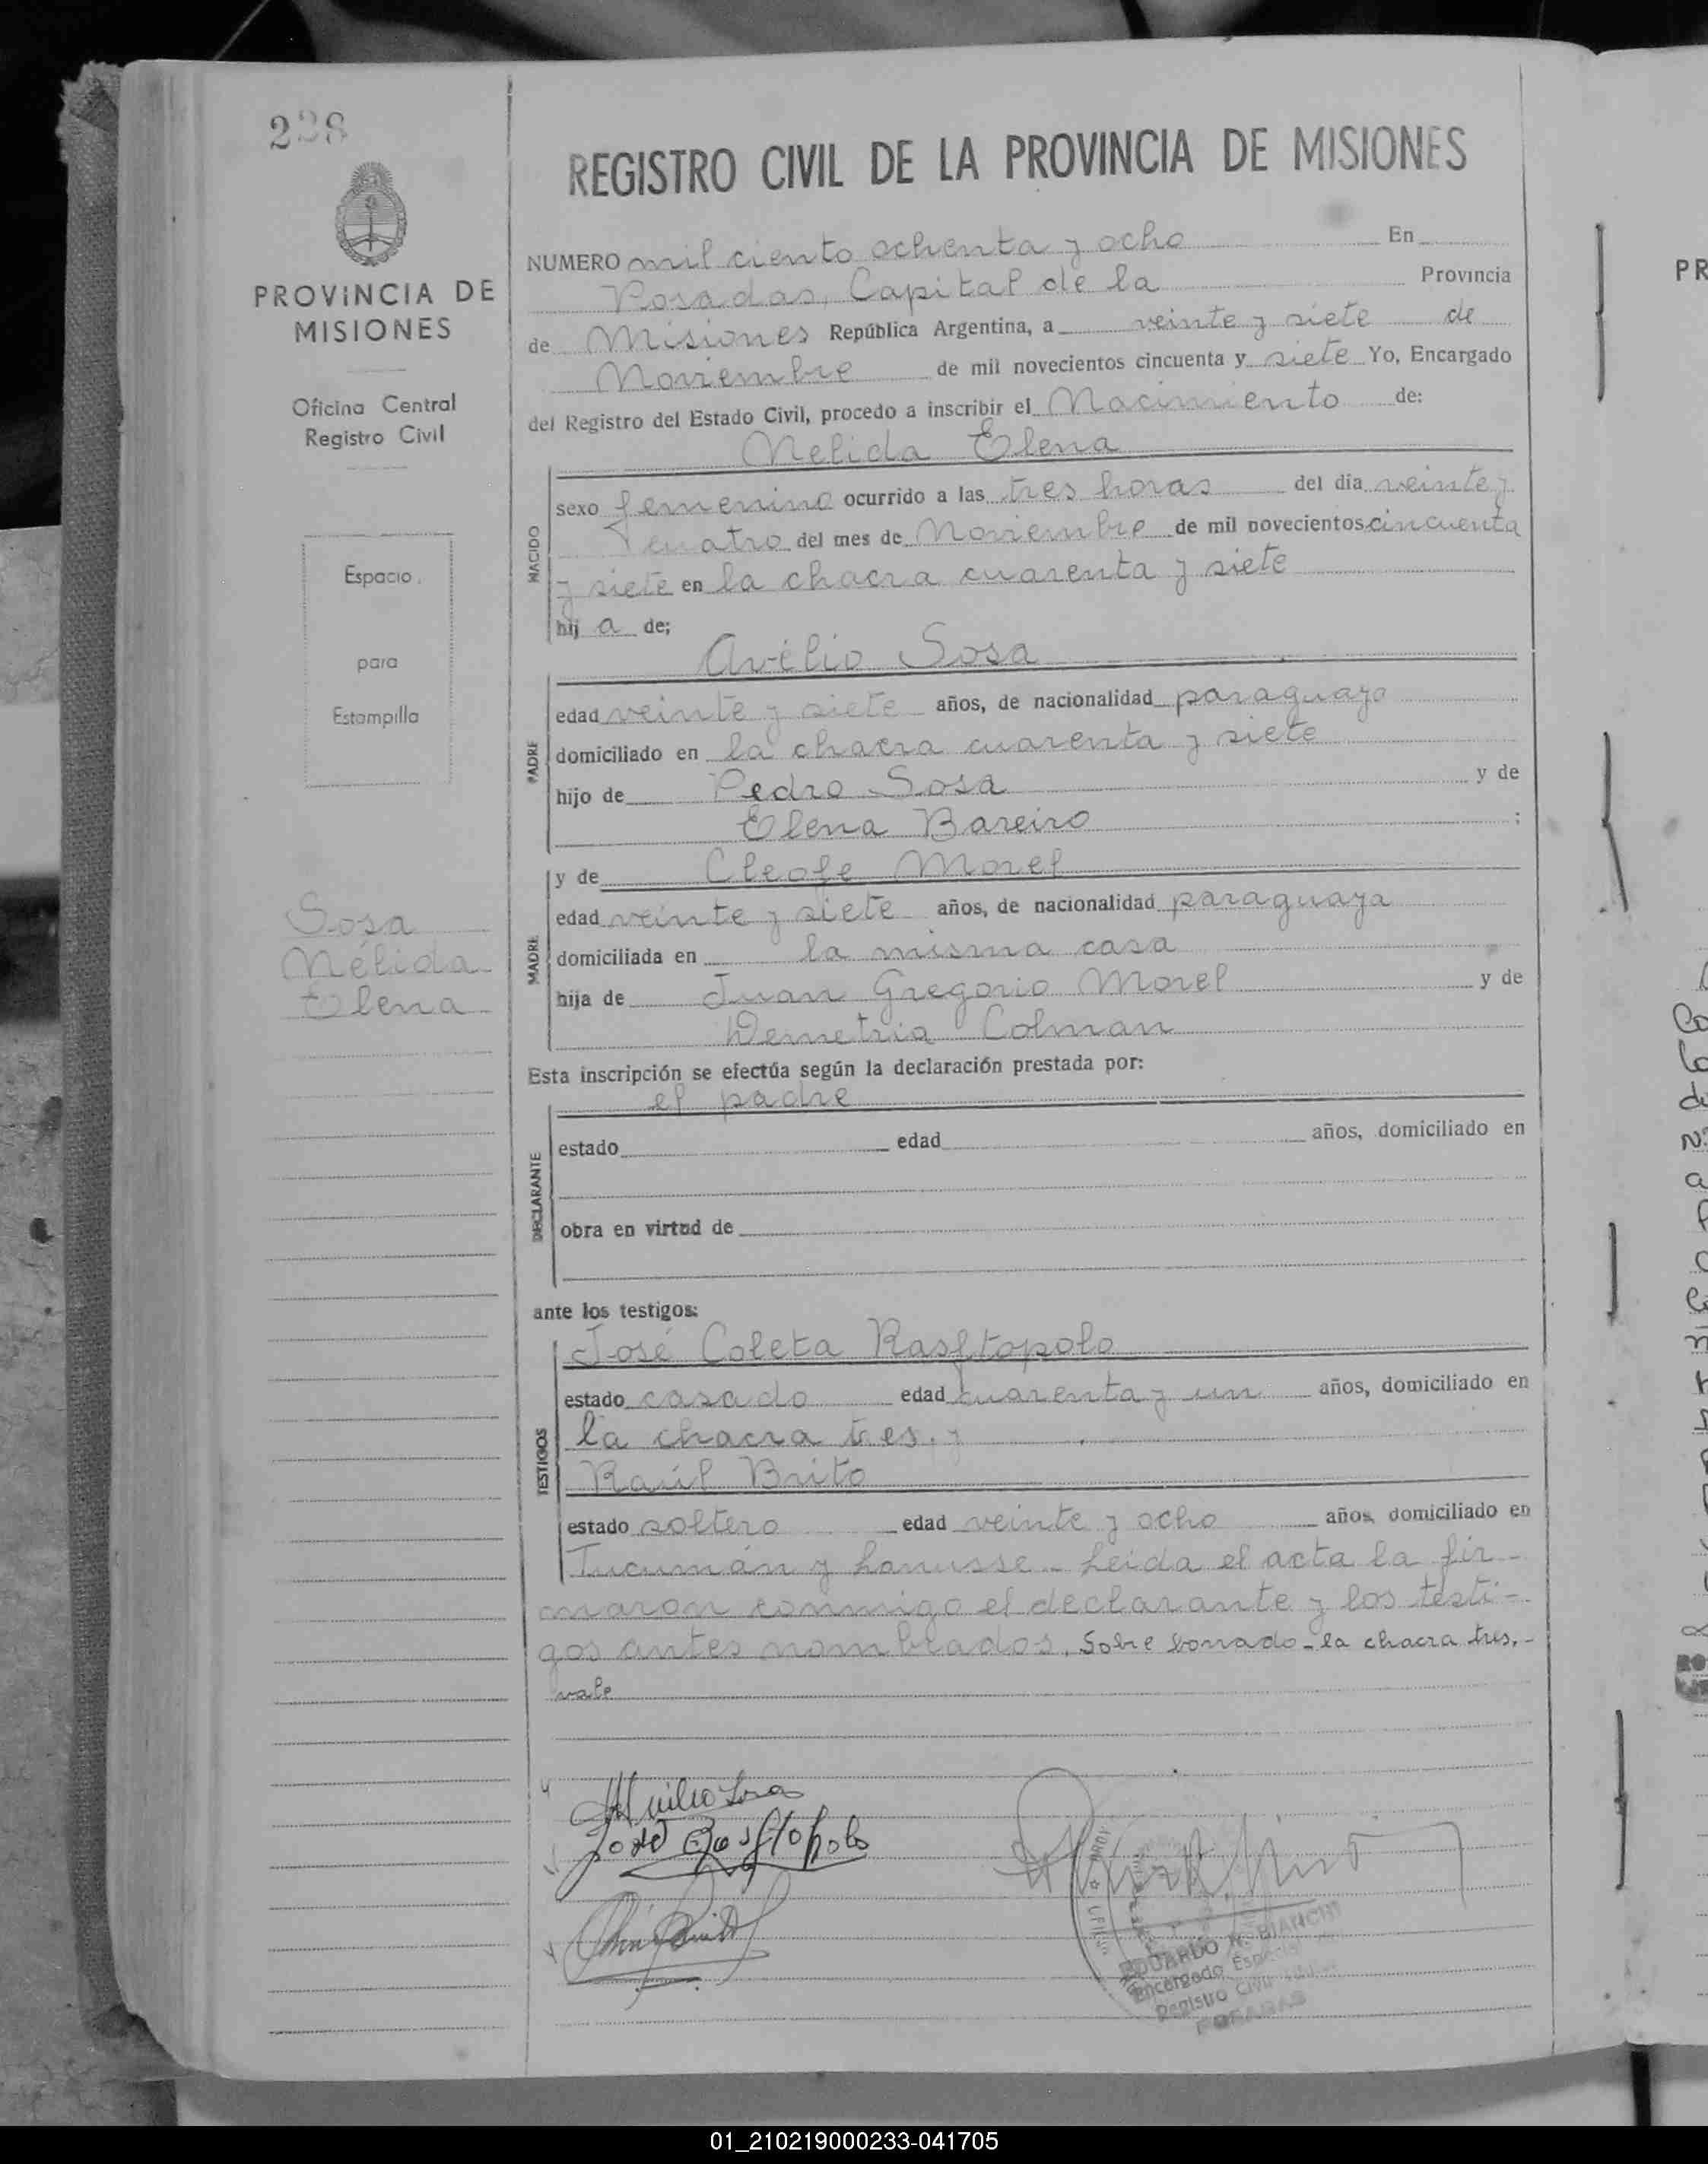 228
PROVINCIA DE
MISIONES
Oficina Central
Registro Civil
Espacio
para
Estampilla
Sosa
Nélida
Elena
REGISTRO CIVIL DE LA PROVINCIA DE MISIONES
NUMERO mil ciento ochenta y ocho En
Posadas, Capital de la Provincia
de Misiones República Argentina, a veinte y siete de
Noviembre de mil novecientos cincuenta y siete Yo, Encargado
del Registro del Estado Civil, procedo a inscribir el Nacimiento de:
Nelida Elena
NACIDO
sexo femenino ocurrido a las tres horas del dia veinte y
cuatro del mes de Noviembre de mil novecientos cincuenta
y siete en la chacra cuarenta y siete
hij a de;
Avelio Sosa
PADRE
edad veinte y siete años, de nacionalidad paraguayo
domiciliado en la chacra cuarenta y siete
hijo de Pedro Sosa y de
Elena Bareiro ;
y de Cleofe Morel
MADRE
edad veinte y siete años, de nacionalidad paraguaya
domiciliada en la misma casa
hija de Juan Gregorio Morel y de
Demetria Colman
Esta inscripción se efectúa según la declaración prestada por:
el padre
DECLARANTE
estado edad años, domiciliado en
obra en virtud de
ante los testigos:
José Coleta Rasftopolo
TESTIGOS
estado casado edad cuarenta y un años, domiciliado en
la chacra tres, y
Raúl Brito
estado soltero edad veinte y ocho años, domiciliado en
Tucumán y Lanusse - Leida el acta la fir-
maron conmigo el declarante y los testi-
gos antes nombrados. Sobre borrado - la chacra tres. -
vale
EDUARDO N. BIANCHI
Encargado
Registro Civil
POSADAS
01_210219000233-041705